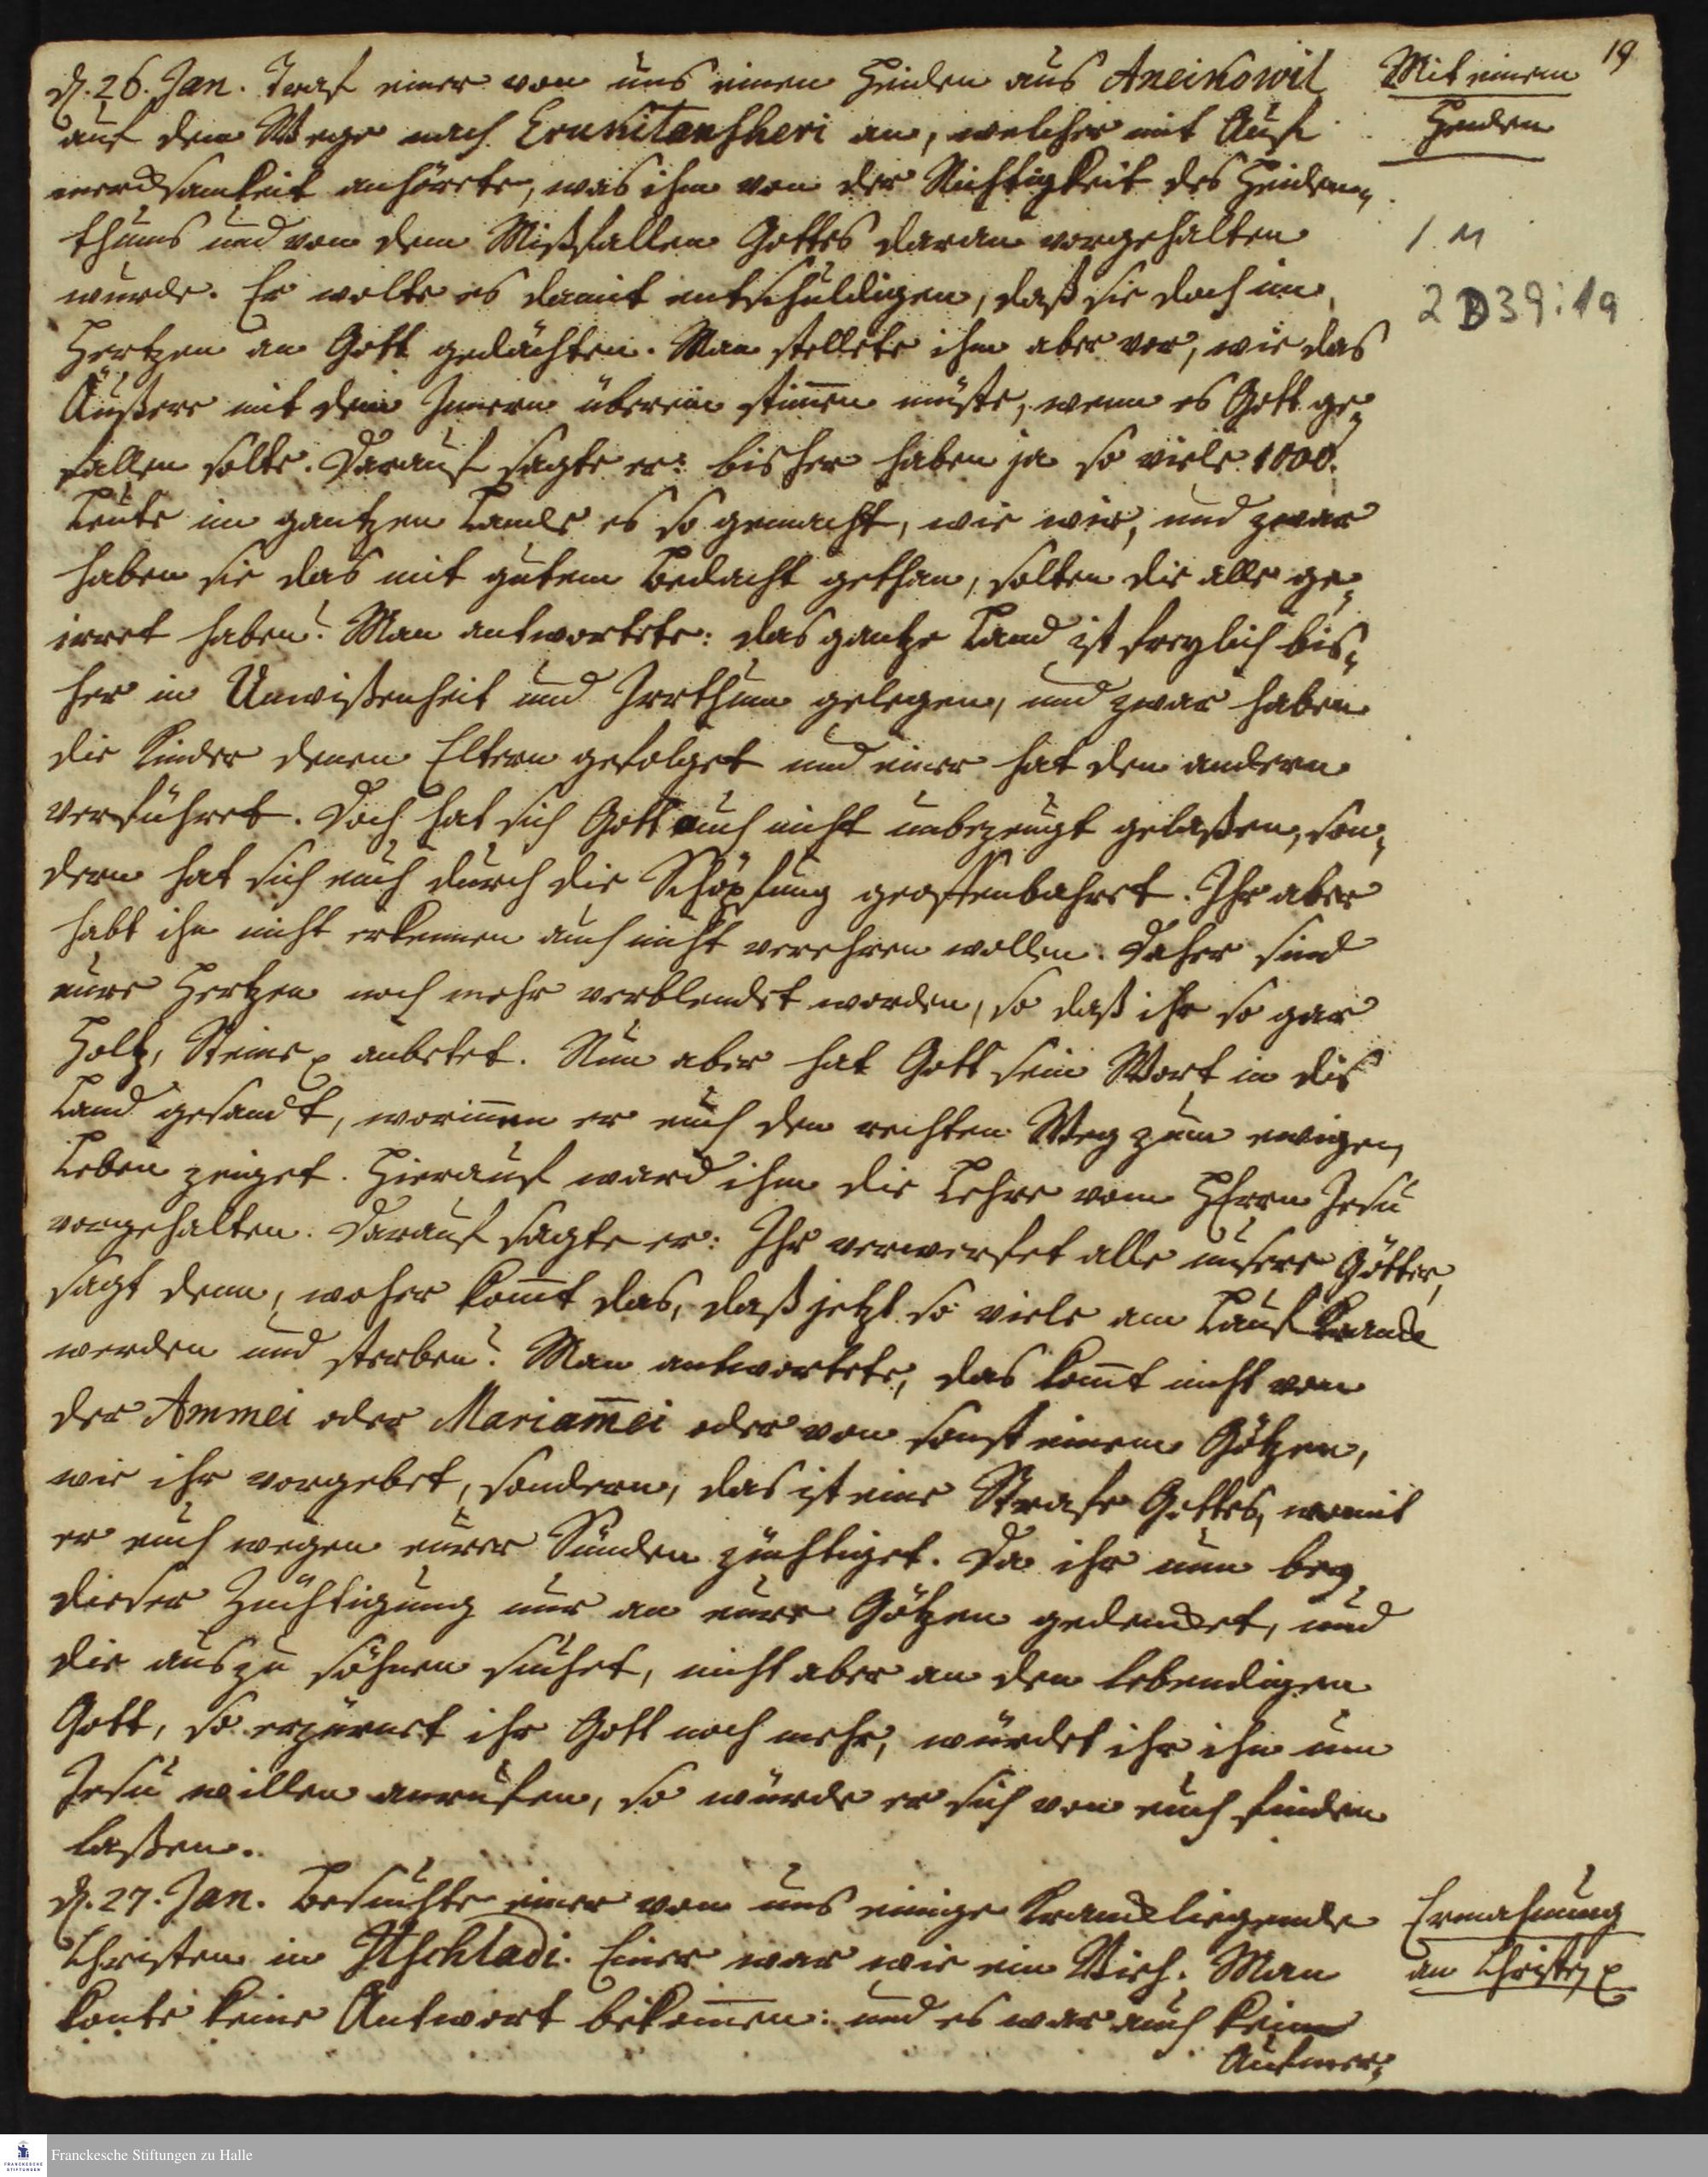 19
d. 26. Jan. Traf einer von uns einen Heiden aus Aneikowil
auf dem Wege nach Erukitanscheri an, welcher mit Auf
mercksamkeit anhörete, was ihm von der Nichtigkeit des Heiden-
thums und von dem Mißfallen Gottes daran vorgehalten
wurde. Er wolte es damit entschuldigen, daß sie doch im
Hertzen an Gott gedächten. Man stellete ihm aber vor, wie das
Äußere mit dem Innern überein stim̄en müste, wenn es Gott ge-
fallen solte. Darauf sagte er: bisher haben ja so viele 1000.
Leute im gantzen Lande es so gemacht, wie wir, und zwar
haben sie das mit gutem Bedacht gethan, solten die alle ge-
irret haben? Man antwortete: das gantze Land ist freylich bis-
her in Unwißenheit und Irrthum gelegen, und zwar haben
die Kinder denen Eltern gefolget und einer hat den andern
verführet. Doch hat sich Gott euch nicht unbezeugt gelaßen, son-
dern hat sich euch durch die Schöpfung geoffenbahret. Ihr aber
habt ihn nicht erkennen auch nicht verehren wollen. Daher sind
eure Hertzen noch mehr verblendet worden, so daß ihr so gar
Holtz, Steine anbetet. Nun aber hat Gott sein Wort in dis
Land gesandt, worin̄en er euch den rechten Weg zum ewigen
Leben zeiget. Hierauf ward ihm die Lehre vom HErrn Jesu
vorgehalten. Darauf sagte er: Ihr verwerfet alle unsere Götter,
sagt denn, woher kom̄t das, daß jetzt so viele am Lauf kranck
werden und sterben? Man antwortete, das kom̄t nicht von
der Ammei oder Mariam̄ei oder von sonst einem Götzen,
wie ihr vorgebet, sondern, das ist eine Strafe Gottes, womit
er euch wegen eurer Sünden züchtiget. Da ihr nun bey
dieser Züchtigung nur an eure Götzen gedencket, und
die auszu söhnen suchet, nicht aber an den lebendigen
Gott, so erzürnet ihr Gott noch mehr, würdet ihr ihn um
Jesu willen anrufen, so würde er sich von euch finden
laßen.
d. 27. Jan. Besuchte einer von uns einige kranckliegende
Christen in Utschladi. Einer war wie ein Vieh. Man
konte keine Antwort bekom̄en: und es war auch keine
Aufmer-
Mit einem
Heiden
1 M
2 D 39:19
Ermahnung
an Christen
Franckesche Stiftungen zu Halle
FRANCKESCHE
STIFTUNGEN